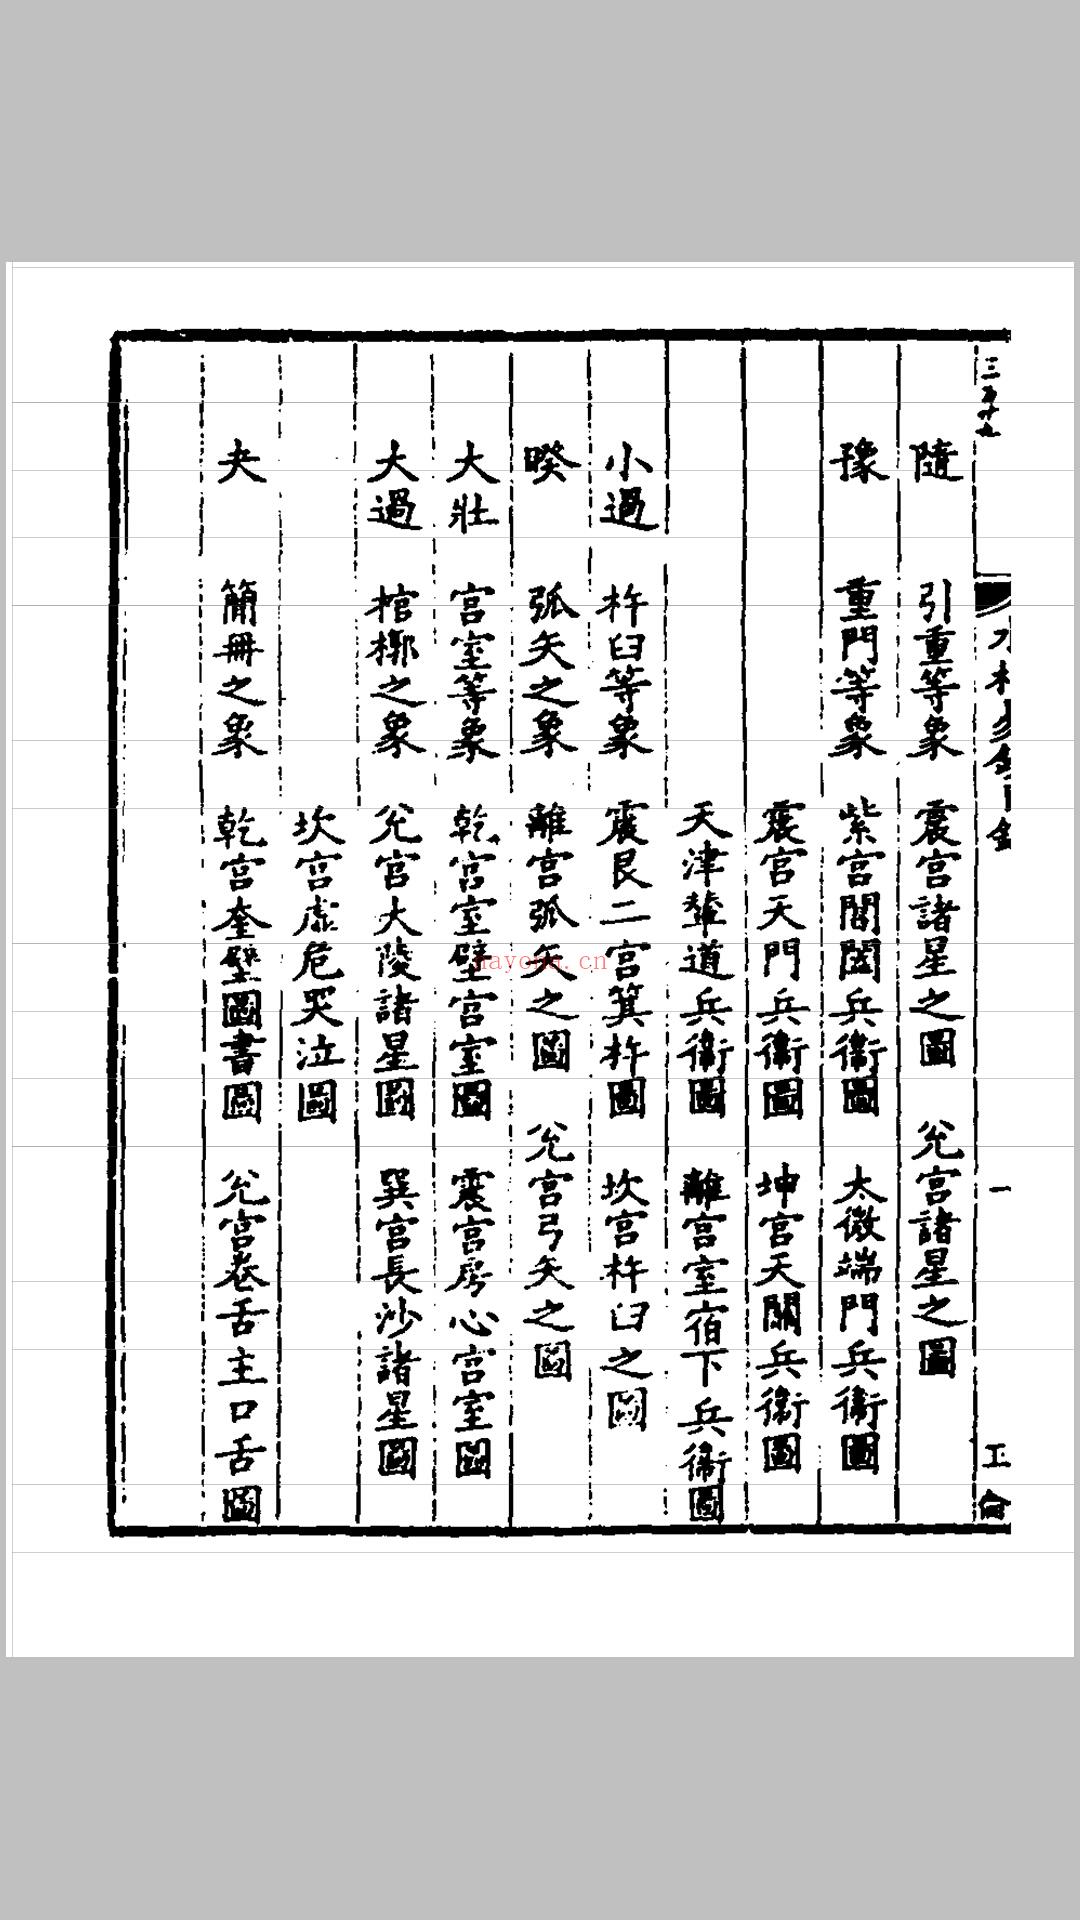 三百十九
隨 引重等象 震宮諸星之圖 兊宮諸星之圖
豫 重門等象 紫宮閶闔兵衛圖 太微端門兵衛圖
震宮天門兵衛圖 坤宮天關兵衛圖
天津輦道兵衛圖 離宮室宿下兵衛圖
小過 杵臼等象 震艮二宮箕杵圖 坎宮杵臼之圖
睽 弧矢之象 離宮弧矢之圖 兊宮弓矢之圖
大壯 宮室等象 乾宮室壁宮室圖 震宮房心宮室圖
大過 棺槨之象 兊宮大陵諸星圖 巽宮長沙諸星圖
坎宮虛危哭泣圖
夬 簡冊之象 乾宮奎壁圖書圖 兊宮卷舌主口舌圖
nayona.cn